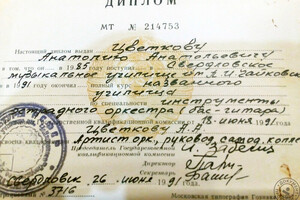 ДИПЛОМ
МТ № 214753
Настоящий диплом выдан Цветкову
Анатолию Анатольевичу
в том, что он в 1985 году поступил в Свердловское
музыкальное училище им. П.И. Чайковского
и в 1991 году окончил полный курс названного
училища
по специальности инструменты
эстрадного оркестра (бас-гитара)
Решением Государственной квалификационной комиссии от 18 июня 1991 г.
Цветкову А.А.
Артист орк., руковод. самод. коллек.
Председатель Государственной
квалификационной комиссии
Свердловск 26 июня 1991 г.
№ 3716
Московская типография Гознака